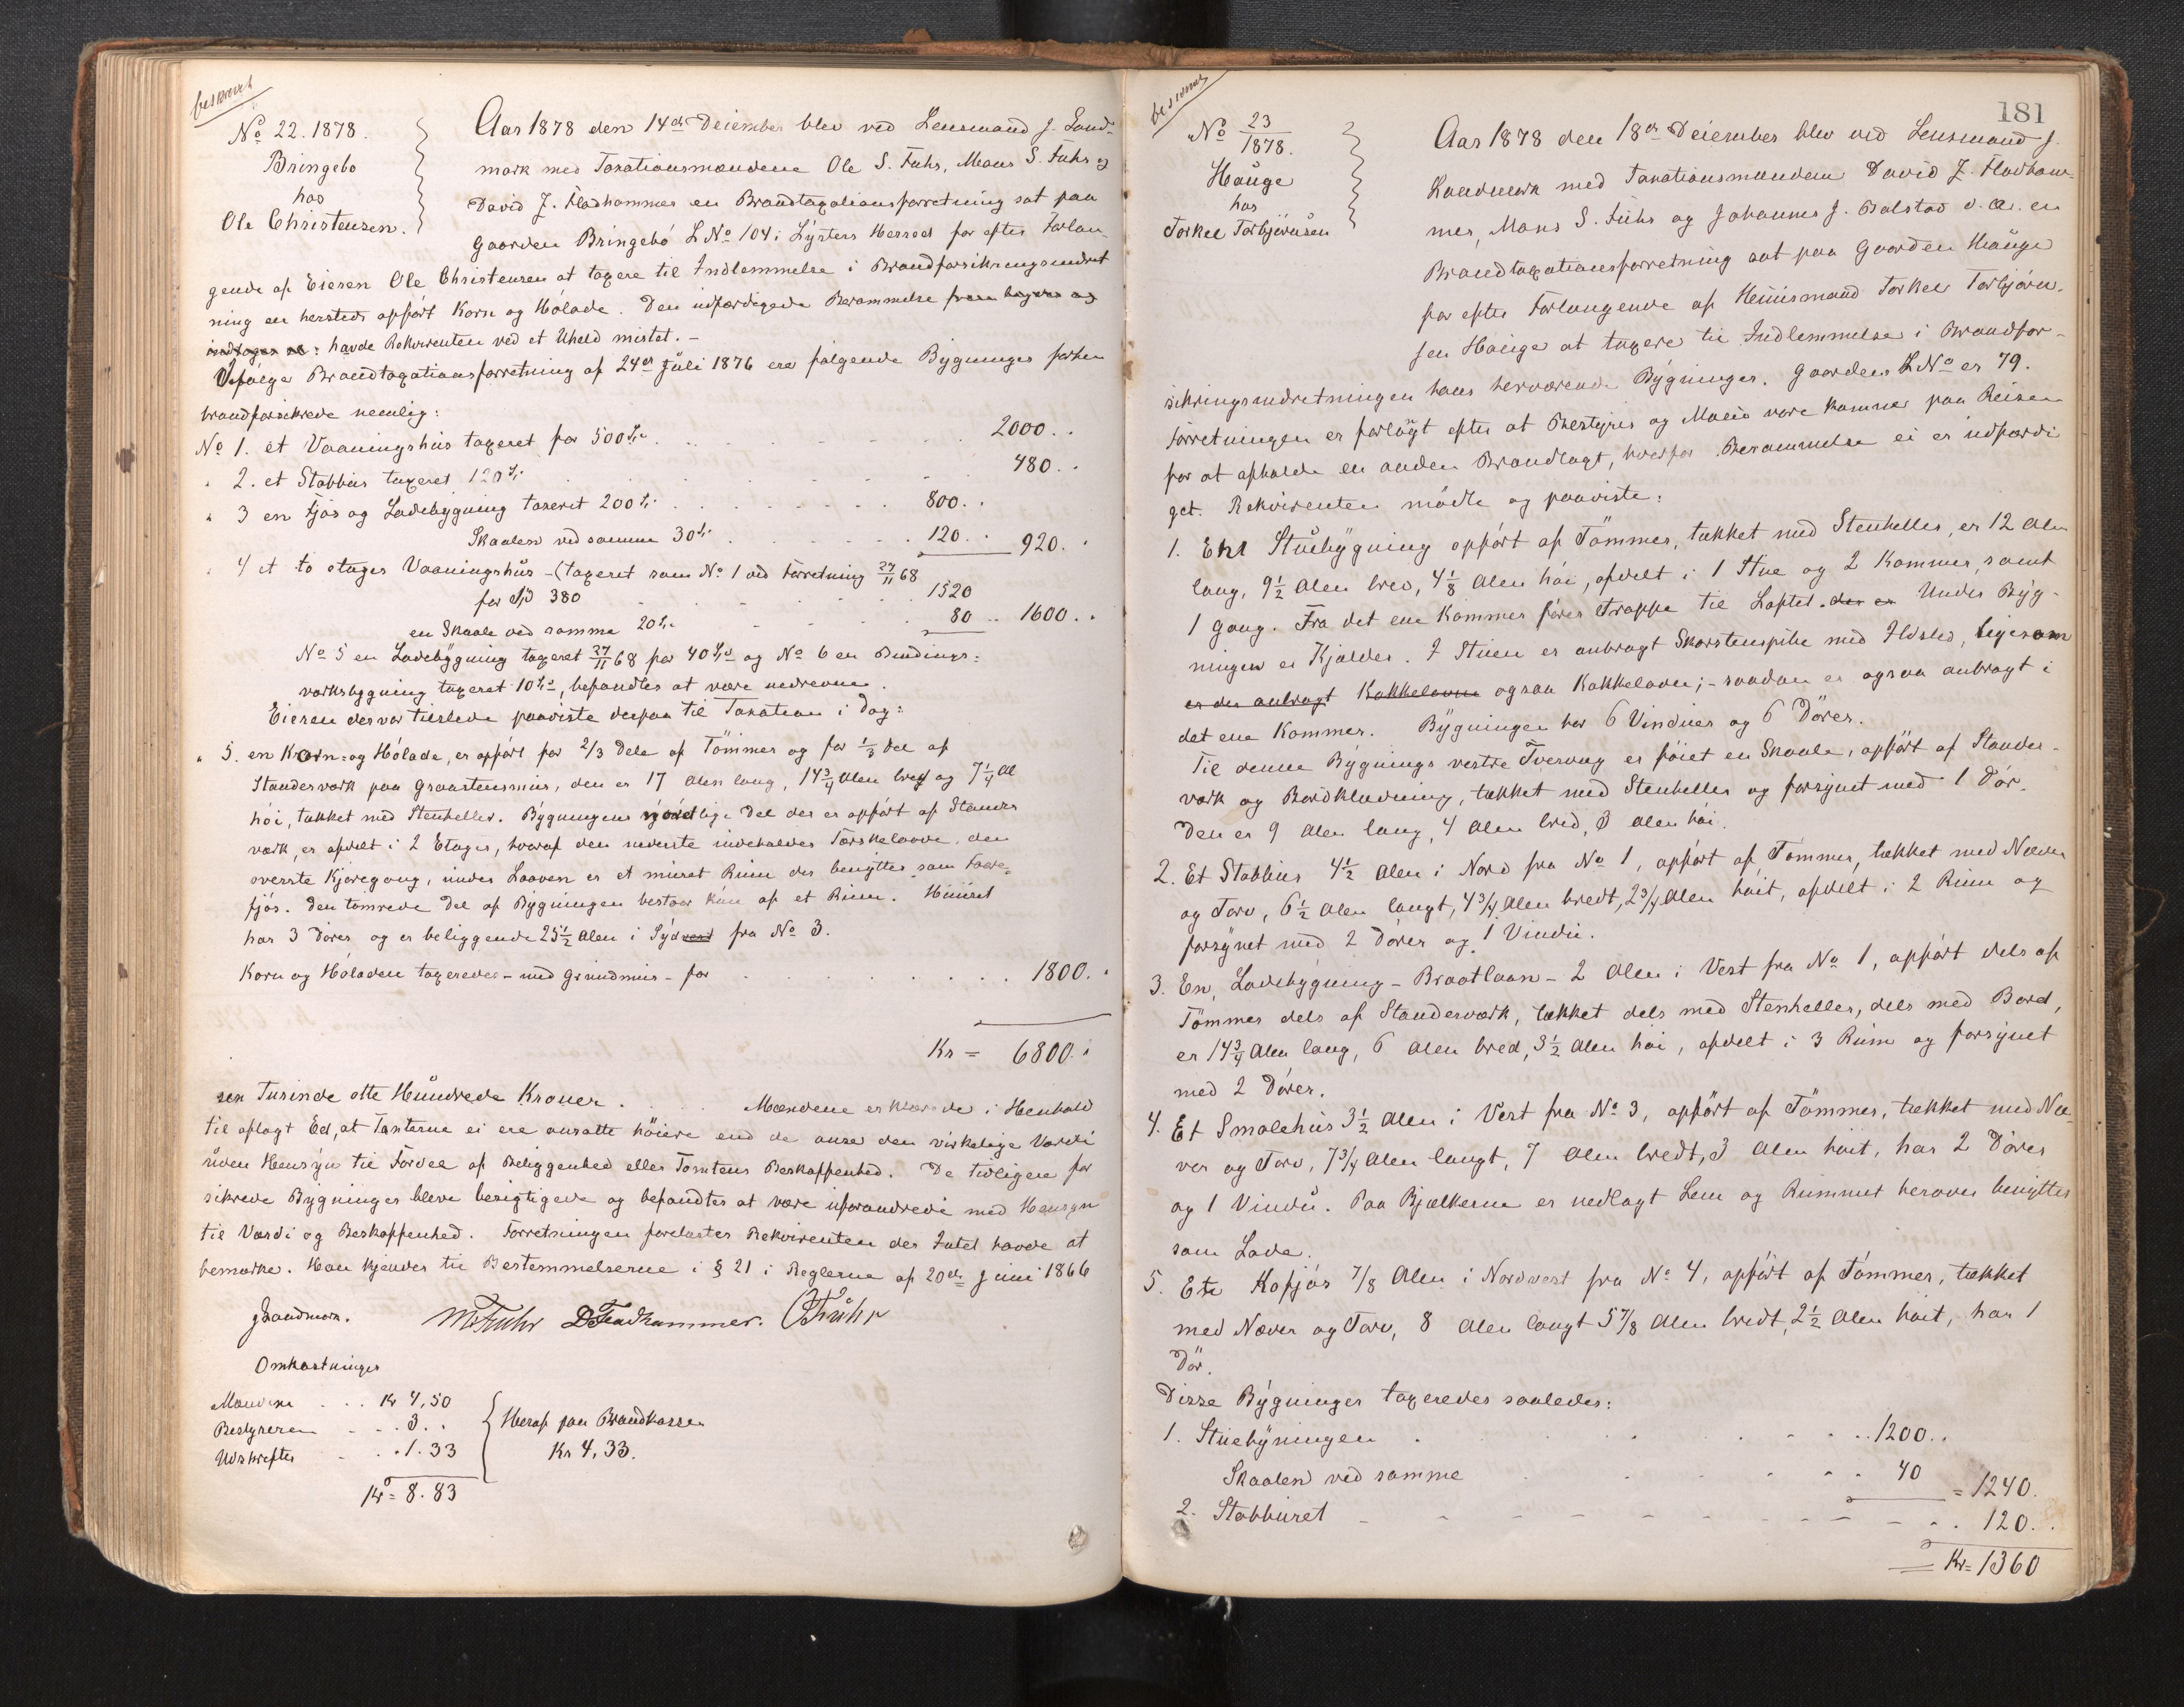 beskrevet
No 22. 1878.
Bringebo
hos
Ole Christensen.
Aar 1878 den 14de Deiember blev ved Lensmand J. Land-
mark med Taxationsmændene Ole S. Fuhr, Mons S. Fuhr og
David J. Fladhammer en Brandtaxationsforretning sat paa
Gaarden Bringebö L No 104 i Lysters Herred for efter Forlan-
gende af Eieren Ole Christensen at taxere til Indlemmelse i Brandforsikringsindret
ning en hersteds opfört Korn og Hölade. Den udfærdigede Berammelse
havde Rekvirenten ved et Uheld mistet. -
Ifölge Brandtaxationsforretning af 24de Juli 1876 ere fölgende Bygninger forhen
brandforsikrede nemlig:
No 1. et Vaaningshus taxeret for 500 Sp. 2000 ..
" 2. et Stabbur taxeret 120 Sp. 480 ..
" 3 en Fjös og Ladebygning taxeret 200 Sp. 800 ..
Skaalen ved samme 30 Sp. 120 .. 920 ..
" 4 et to etages Vaaningshus - (taxeret som No 1 ved Forretning 27/11 68
for Spd 380 1520
en Skaale ved samme 20 Sp. 80 .. 1600 ..
No 5 en Ladebygning taxeret 27/11 68 for 40 Spd og No 6 en Bindings-
værksbygning taxeret 10 Spd, befandtes at være nedrevne.
Eieren der var tilstede paaviste derpaa til Taxation i Dag:
" 5. en Korn- og Hölade, er opfört for 2/3 Dele af Tömmer og for 1/3 Del af
Standerværk paa Graastensmur, den er 17 Alen lang, 14 3/4 Alen bred og 7 1/4 Al
höi, tækket med Stenheller. Bygningens sydlige Del der er opfört af Stander
værk, er afdelt i 2 Etager, hvoraf den nederste indeholder Tærskelaave, den
överste Kjöregang, under Laaven er et muret Rum der benyttes som Faare-
fjös. Den tömrede Del af Bygningen bestaar kun af et Rum. Huset
har 3 Dörer og er beliggende 25 1/2 Alen i Syd vest fra No 3.
Korn og Höladen taxeredes - med Grundmur - for 1800 ..
Kr = 6800 ..
sex Tusinde otte Hundrede Kroner. Mændene erklærede i Henhold
til aflagt Ed, at Taxterne ei ere ansatte höiere end de anse den virkelige Værdi
uden Hensyn til Fordel af Beliggenhed eller Tomtens Beskaffenhed. De tidligere for
sikrede Bygninger bleve besigtigede og befandtes at være uforandrede med Hensyn
til Værdi og Beskaffenhed. Forretningen forelæstes Rekvirenten der Intet havde at
bemærke. Han kjender til Bestemmelserne i § 21 i Reglerne af 20de Juni 1866
J Landmark. M S Fuhr D J Fladhammer. O S Fuhr
Omkostninger
Mændene .. Kr 4,50
Bestyreren ... 3 ..
Udskrifter .. 1.33
Kr = 8.83
Heraf paa Brandkassen
Kr 4,33.
beskrevet
181
No 23/1878.
Hauge
hos
Torkel Torbjörnsen
Aar 1878 den 18de Deiember blev ved Lensmand J.
Landmark med Taxationsmændene David J. Fladham-
mer, Mons S. Fuhr og Johannes J. Bolstad o. a. en
Brandtaxationsforretning sat paa Gaarden Hauge
for efter Forlangende af Huusmand Torkel Torbjörn-
sen Hauge at taxere til Indlemmelse i Brandfor-
sikringsindretningen hans herværende Bygninger. Gaardens L No er 79.
Forretningen er forlagt efter at Bestyrer og Mænd vare komne paa Reisen
for at afholde en anden Brandtaxt, hvorfor Berammelse ei er udfærdi
get. Rekvirenten mödte og paaviste:
1. En Stuebygning opfört af Tömmer, tækket med Stenheller, er 12 Alen
lang, 9 1/2 Alen bred, 4 1/8 Alen höi, afdelt i 1 Stue og 2 Kammer, samt
1 Gang. Fra det ene Kammer förer Trappe til Loftet. der er Under Byg-
ningen er Kjælder. I Stuen er anbragt Skorstenspibe med Ildsted, ligesom
er der anbragt Kakkelovne ogsaa Kakkelovn; - saadan er ogsaa anbragt i
det ene Kammer. Bygningen har 6 Vinduer og 6 Dörer.
Til denne Bygnings vestre Tvervæg er föiet en Skaale, opfört af Stander-
værk og Bordklædning, tækket med Stenheller og forsynet med 1 Dör.
Den er 9 Alen lang, 4 Alen bred, 3 Alen höi.
2. Et Stabbur 4 1/2 Alen i Nord fra No 1, opfört af Tömmer, tækket med Næver
og Torv, 6 1/2 Alen langt, 4 3/4 Alen bredt, 2 3/4 Alen höit, afdelt i 2 Rum og
forsynet med 2 Dörer og 1 Vindu.
3. En Ladebygning - Braatlaan - 2 Alen i Vest fra No 1, opfört dels af
Tömmer dels af Standerværk, tækket dels med Stenheller, dels med Bord,
er 14 3/4 Alen lang, 6 Alen bred, 3 1/2 Alen höi, afdelt i 3 Rum og forsynet
med 2 Dörer.
4. Et Smalehus 3 1/2 Alen i Vest fra No 3, opfört af Tömmer, tækket med Næ-
ver og Torv, 7 3/4 Alen langt, 7 Alen bredt, 3 Alen höit, har 2 Dörer
og 1 Vindu. Paa Bjælkerne er nedlagt Lem og Rummet herover benyttes
som Lade.
5. Et Kofjös 7/8 Alen i Nordvest fra No 4, opfört af Tömmer, tækket
med Næver og Torv, 8 Alen langt 5 7/8 Alen bredt, 2 1/2 Alen höit, har 1
Dör.
Disse Bygninger taxeredes saaledes:
1. Stuebyningen 1200 ..
Skaalen ved samme 40 = 1240.
2. Stabburet 120 ..
Kr = 1360